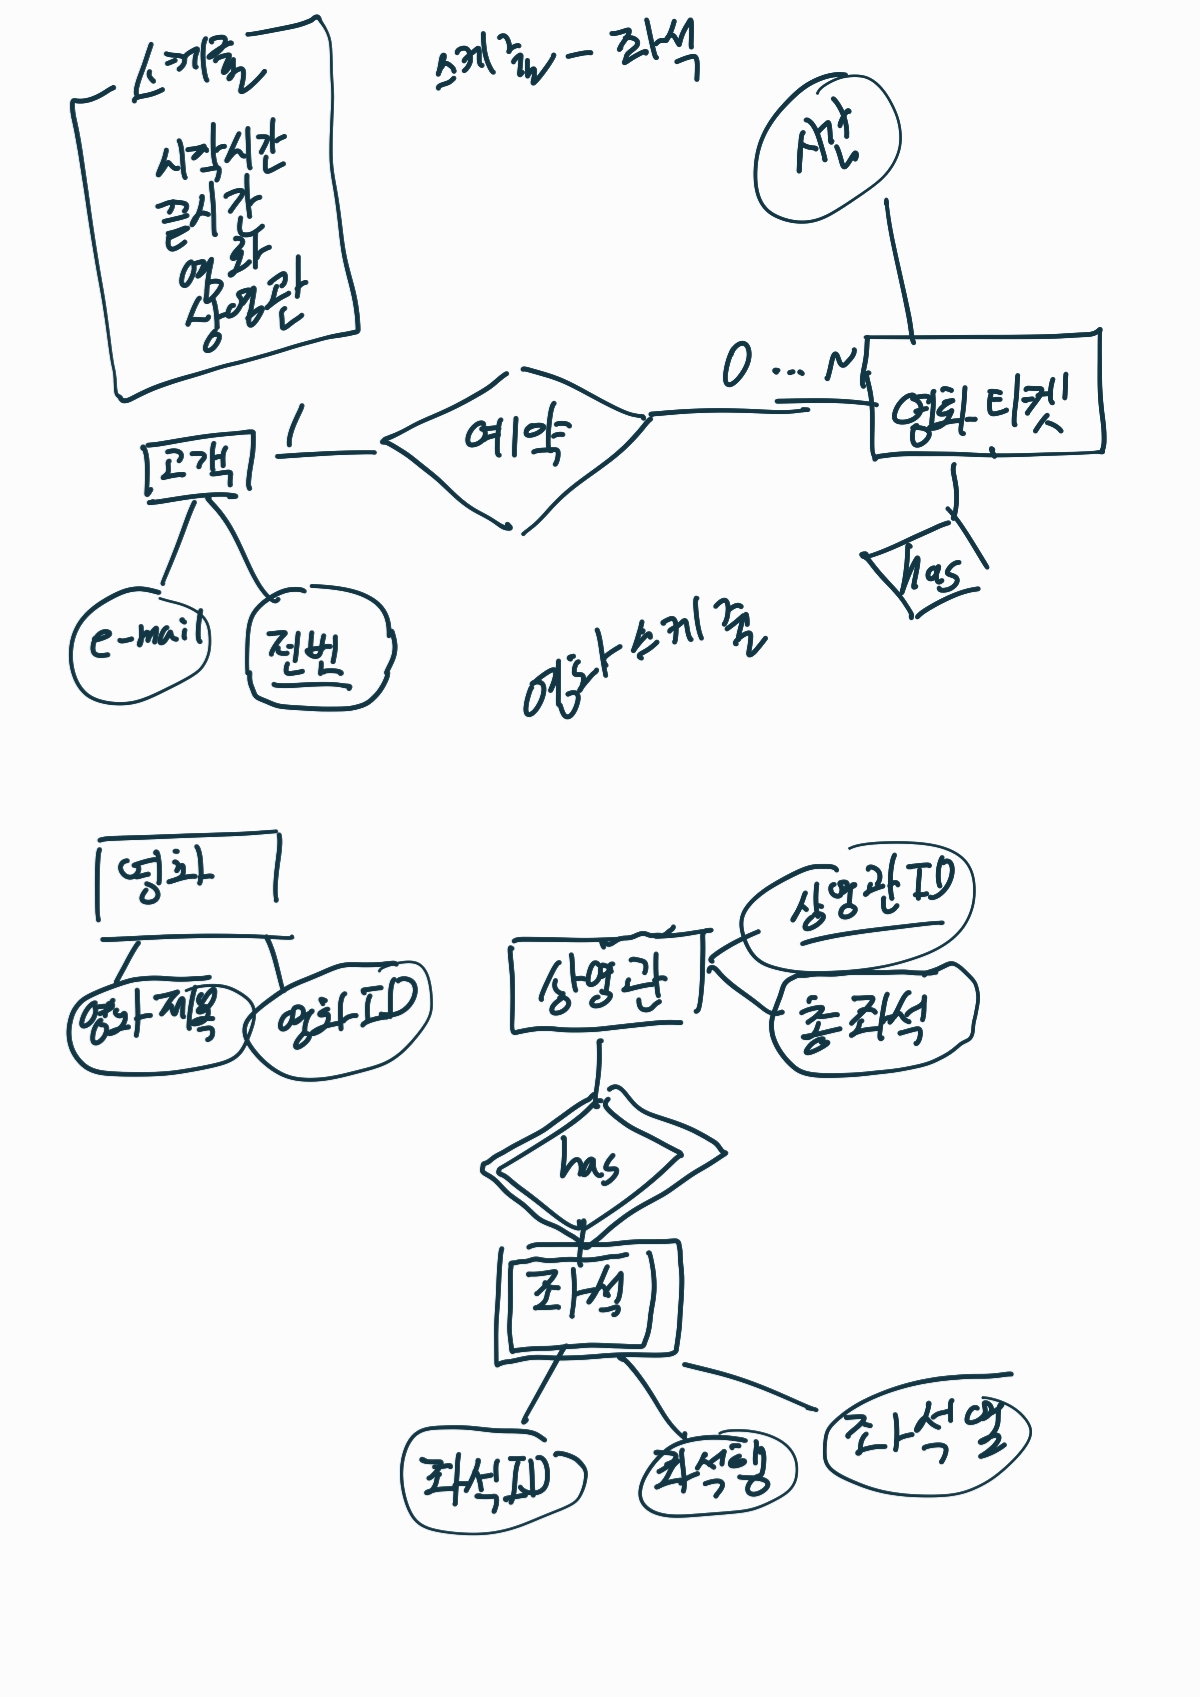 스케줄
시작시간
끝시간
영화
상영관
스케줄 - 좌석
시간
고객
1
예약
0 ... N
영화 티켓
has
e-mail
전번
영화 스케줄
영화
영화 제목
영화 ID
상영관
상영관 ID
총 좌석
has
좌석
좌석 ID
좌석행
좌석열